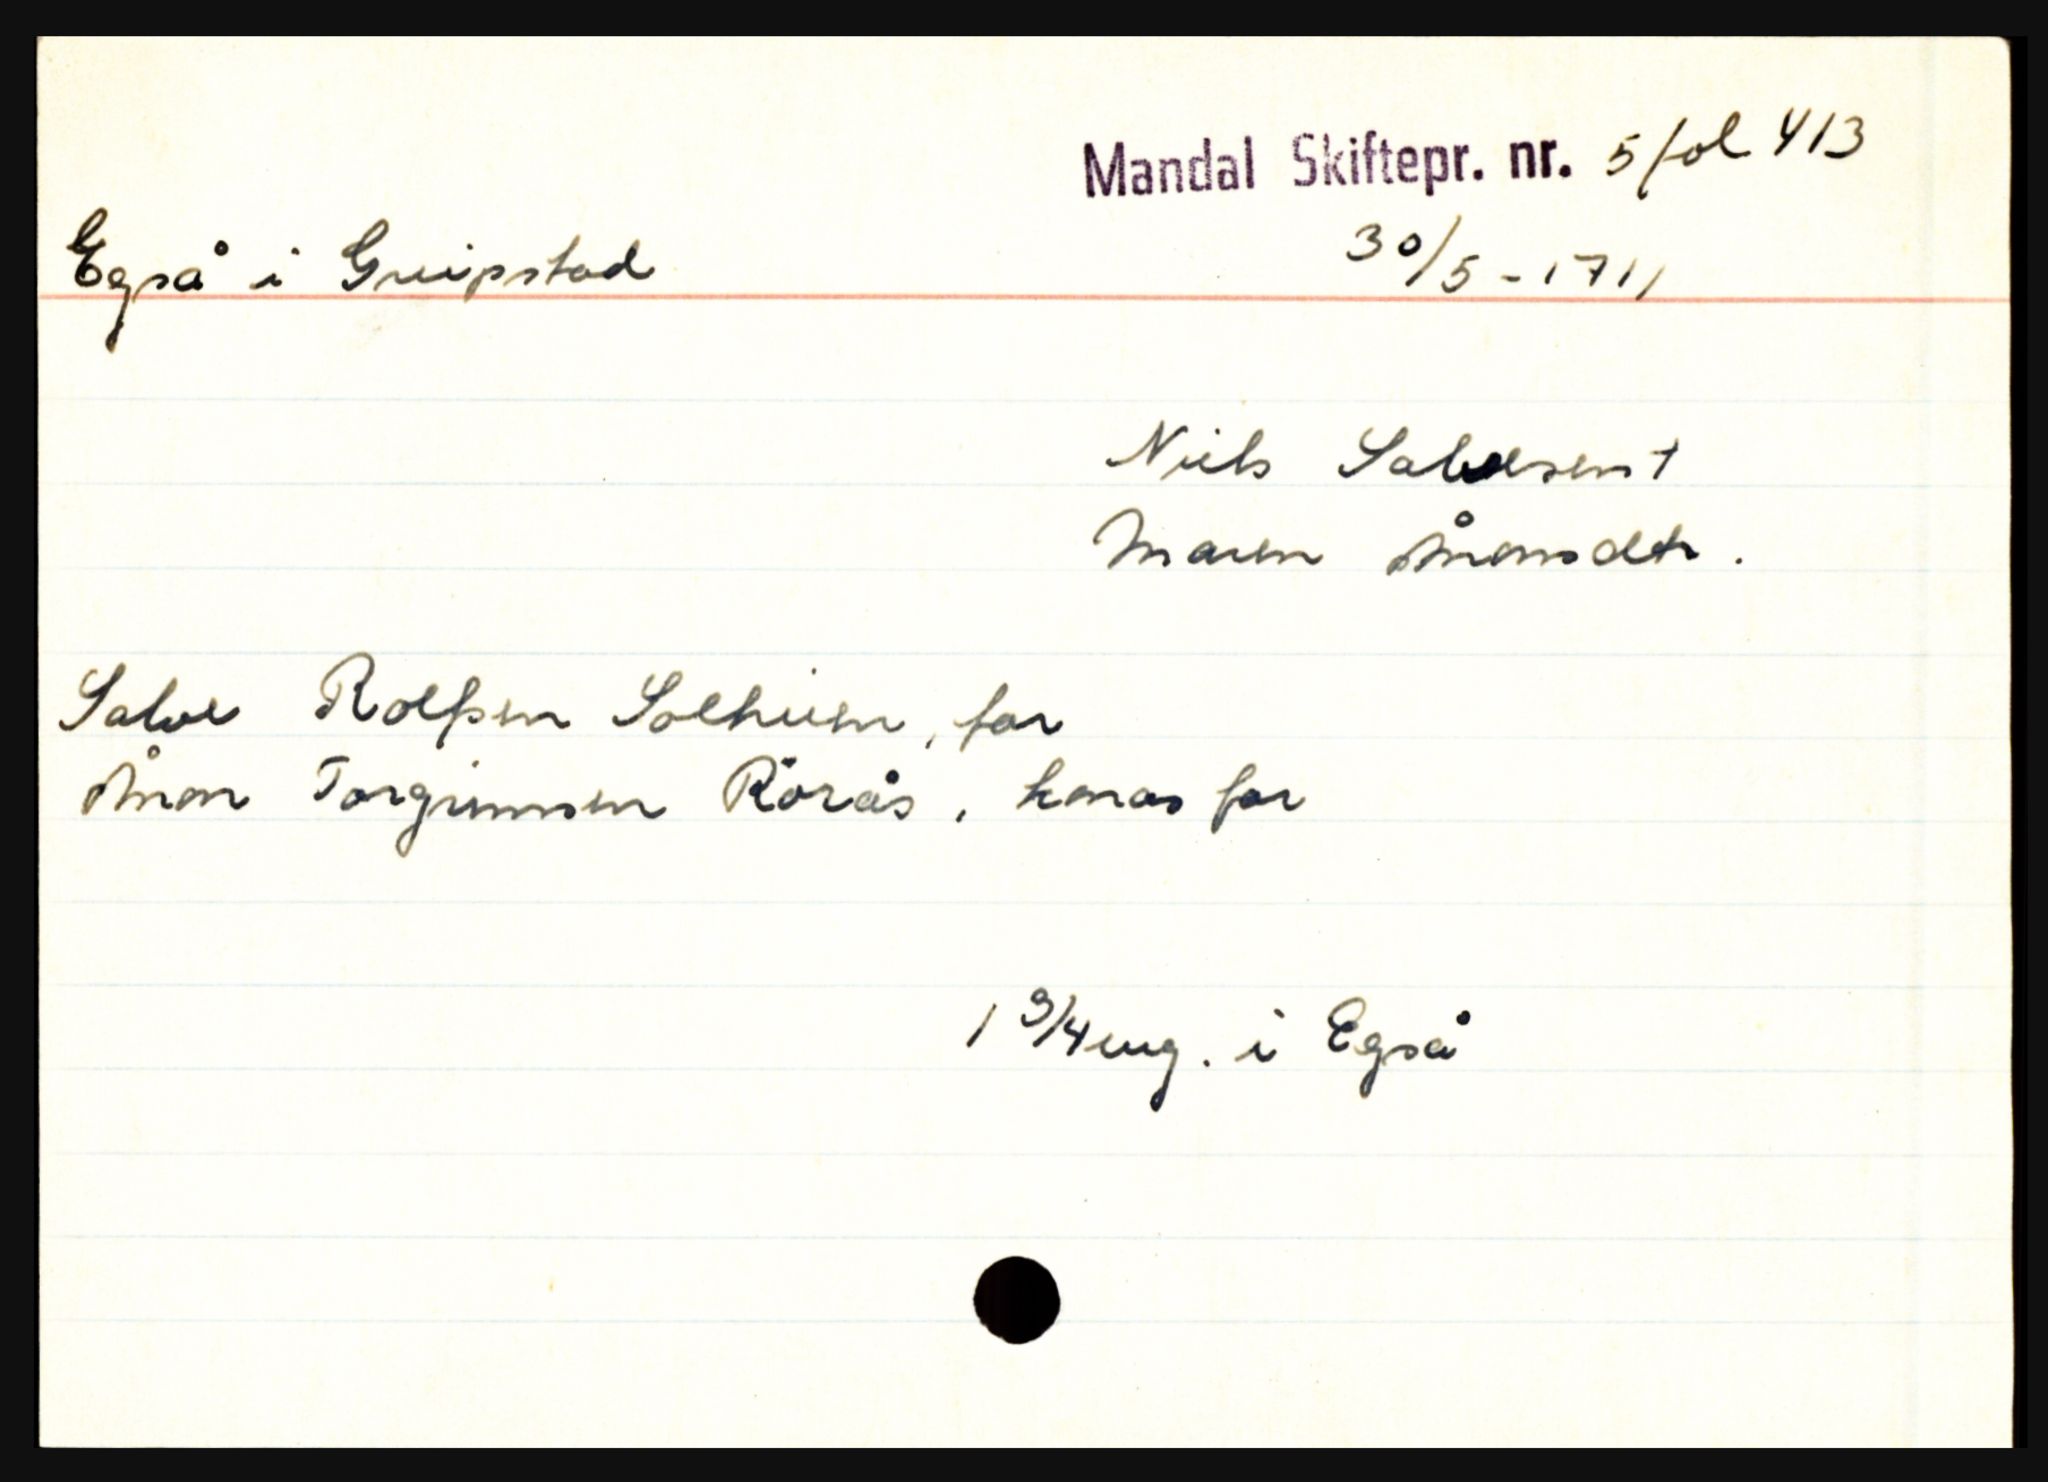 Mandal Skiftepr. nr. 5 fol 413
30/5 - 1711
Egså i Greipstad
Niels Salvesen †
Maren Ånonsdtr.
Salve Rolfsen Solheien, far
Ånon Torgrimsen Rörås, konas far
1 3/4 eng. i Egså